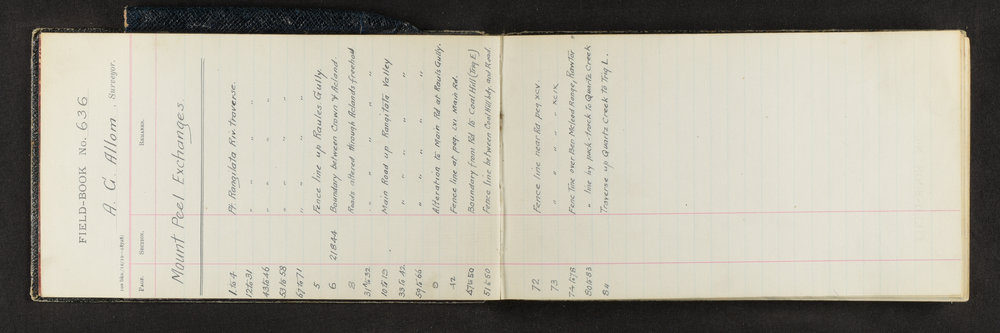 FIELD-BOOK No. 636
A. G. Allom, Surveyor.
PAGE. SECTION. REMARKS.
Mount Peel Exchanges.
1 to 4 Pt. Rangitata Riv. traverse.
12 to 31 " " "
43 to 46 " " "
53 to 58 " " "
67 to 71 " " "
5 Fence line up Raules Gully.
6 21844 Boundary between Crown & Acland
8 Roads altered through Aclands freehold
31 to 32 " " "
10 to 12 Main Road up Rangitata Valley
33 to 42 " " "
59 to 66 " " "
9 Alteration to Main Rd at Rauls Gully.
42 Fence line at peg LVI Main Rd.
47 to 50 Boundary from Rd to Coal Hill (Trig E)
51 to 50 Fence line between Coal Hill bdy. and Road
72 Fence line near Rd peg XCV.
73 " " " " XCIX
74 to 78 Fence line over Ben McLeod Range, Rawtor
80 to 83 " line by pack-track to Quartz Creek
84 Traverse up Quartz Creek to Trig L.